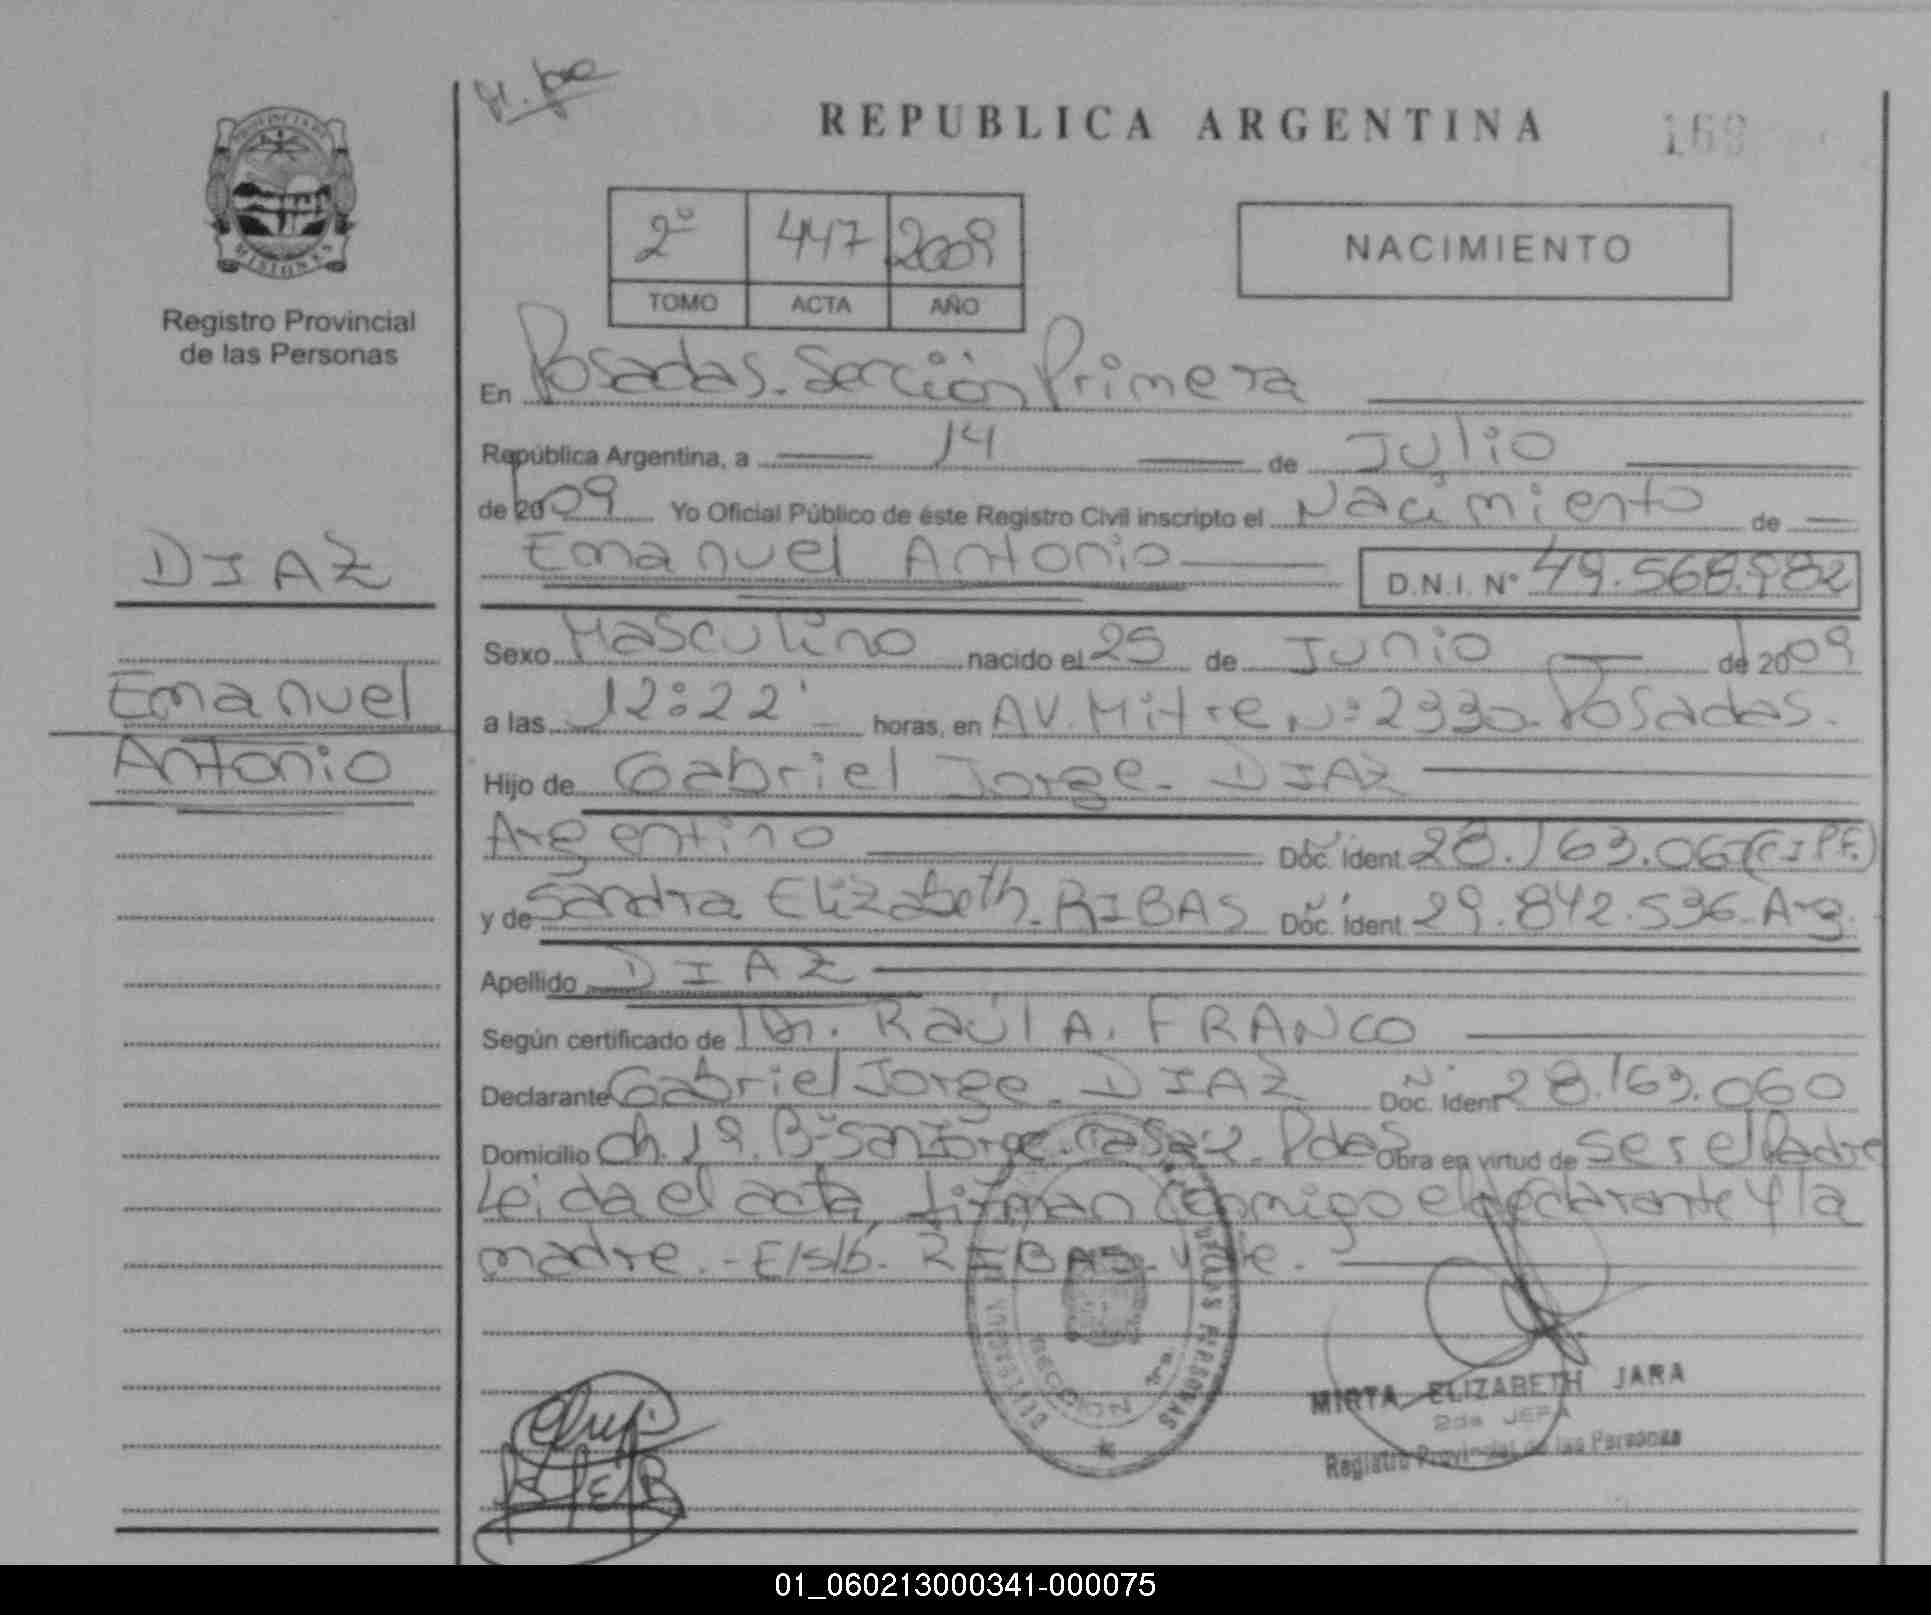 REPUBLICA ARGENTINA
169
PROVINCIA DE
MISIONES
Registro Provincial
de las Personas
2º 447 2009
TOMO ACTA AÑO
NACIMIENTO
En Posadas. Sección Primera
República Argentina, a 14 de Julio
de 2009 Yo Oficial Público de éste Registro Civil inscripto el Nacimiento de
Emanuel Antonio D.N.I. Nº 49.568.982
DIAZ
Emanuel
Antonio
Sexo Masculino nacido el 25 de Junio de 2009
a las 12:22' horas, en AV. Mitre Nº 2330. Posadas.
Hijo de Gabriel Jorge. DIAZ
Argentino Doc. Ident. 28.163.060 (CIPF.)
y de Sandra Elizabeth. RIBAS Doc. Ident. 29.842.536 Arg.
Apellido DIAZ
Según certificado de Dr. Raúl A. FRANCO
Declarante Gabriel Jorge. DIAZ Doc. Ident 28.163.060
Domicilio Ch. 19. Bº San Jorge. Casa 2. Pdas Obra en virtud de ser el Padre
Leida el acta, firman conmigo el declarante y la
madre. - E/s/b. RIBAS. Vale.
DE LAS PERSONAS
SECCION 1ra
MIRTA ELIZABETH JARA
2da JEFA
Registro Provincial de las Personas
01_060213000341-000075